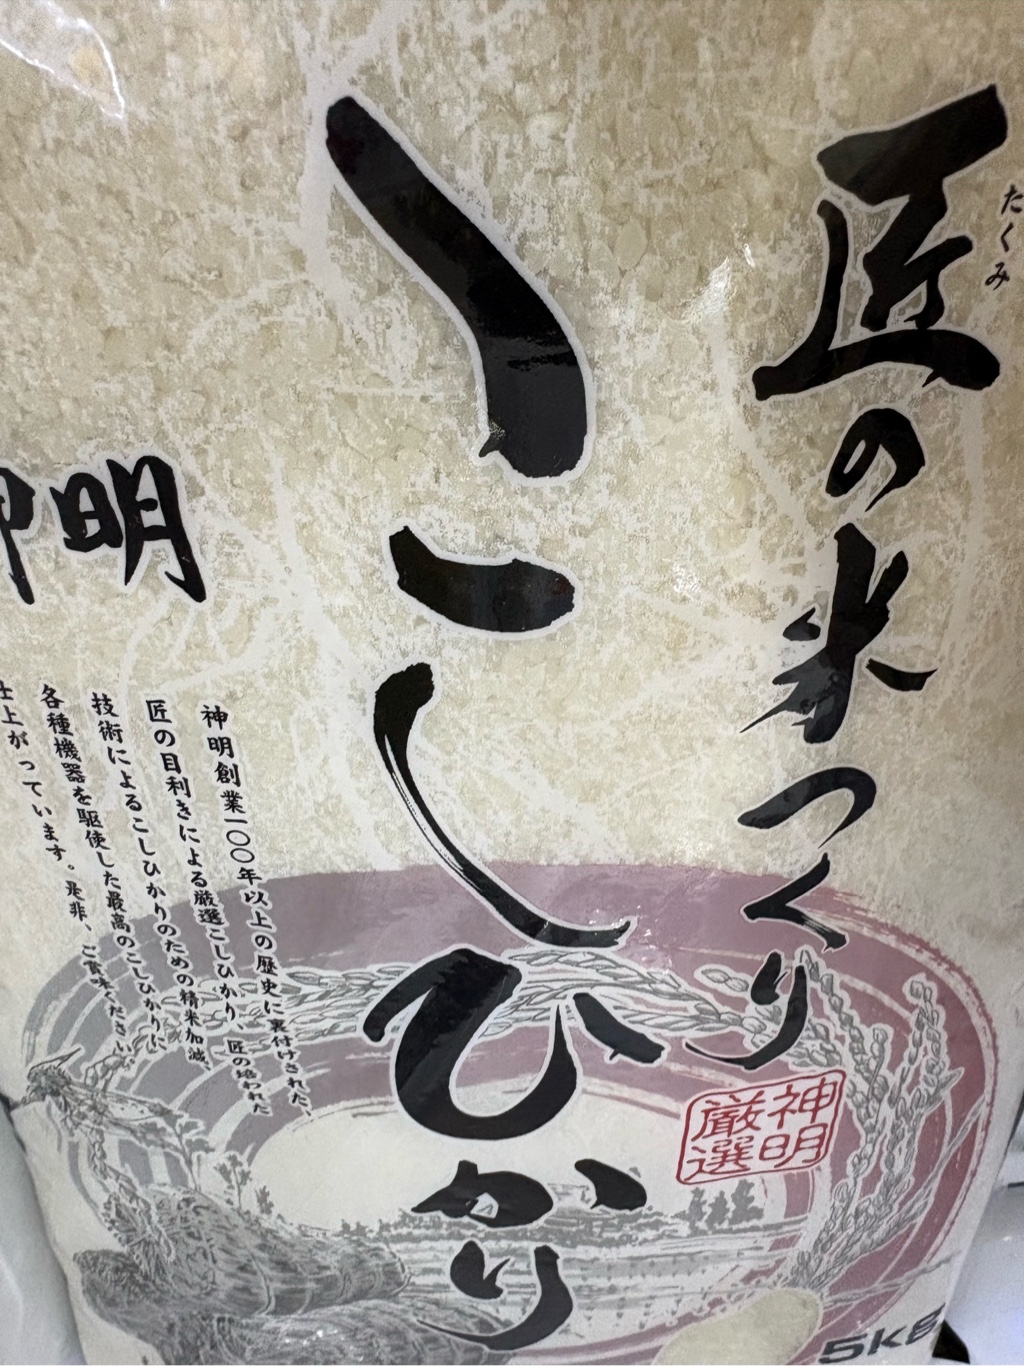 匠の米つくり
たくみ
こしひかり
神明
厳選
神明創業一〇〇年以上の歴史に裏付けされた、
匠の目利きによる厳選こしひかり、匠の培われた
技術によるこしひかりのための精米加減、
各種機器を駆使した最高のこしひかりに
仕上がっています。是非、ご賞味ください。
神明
5KG